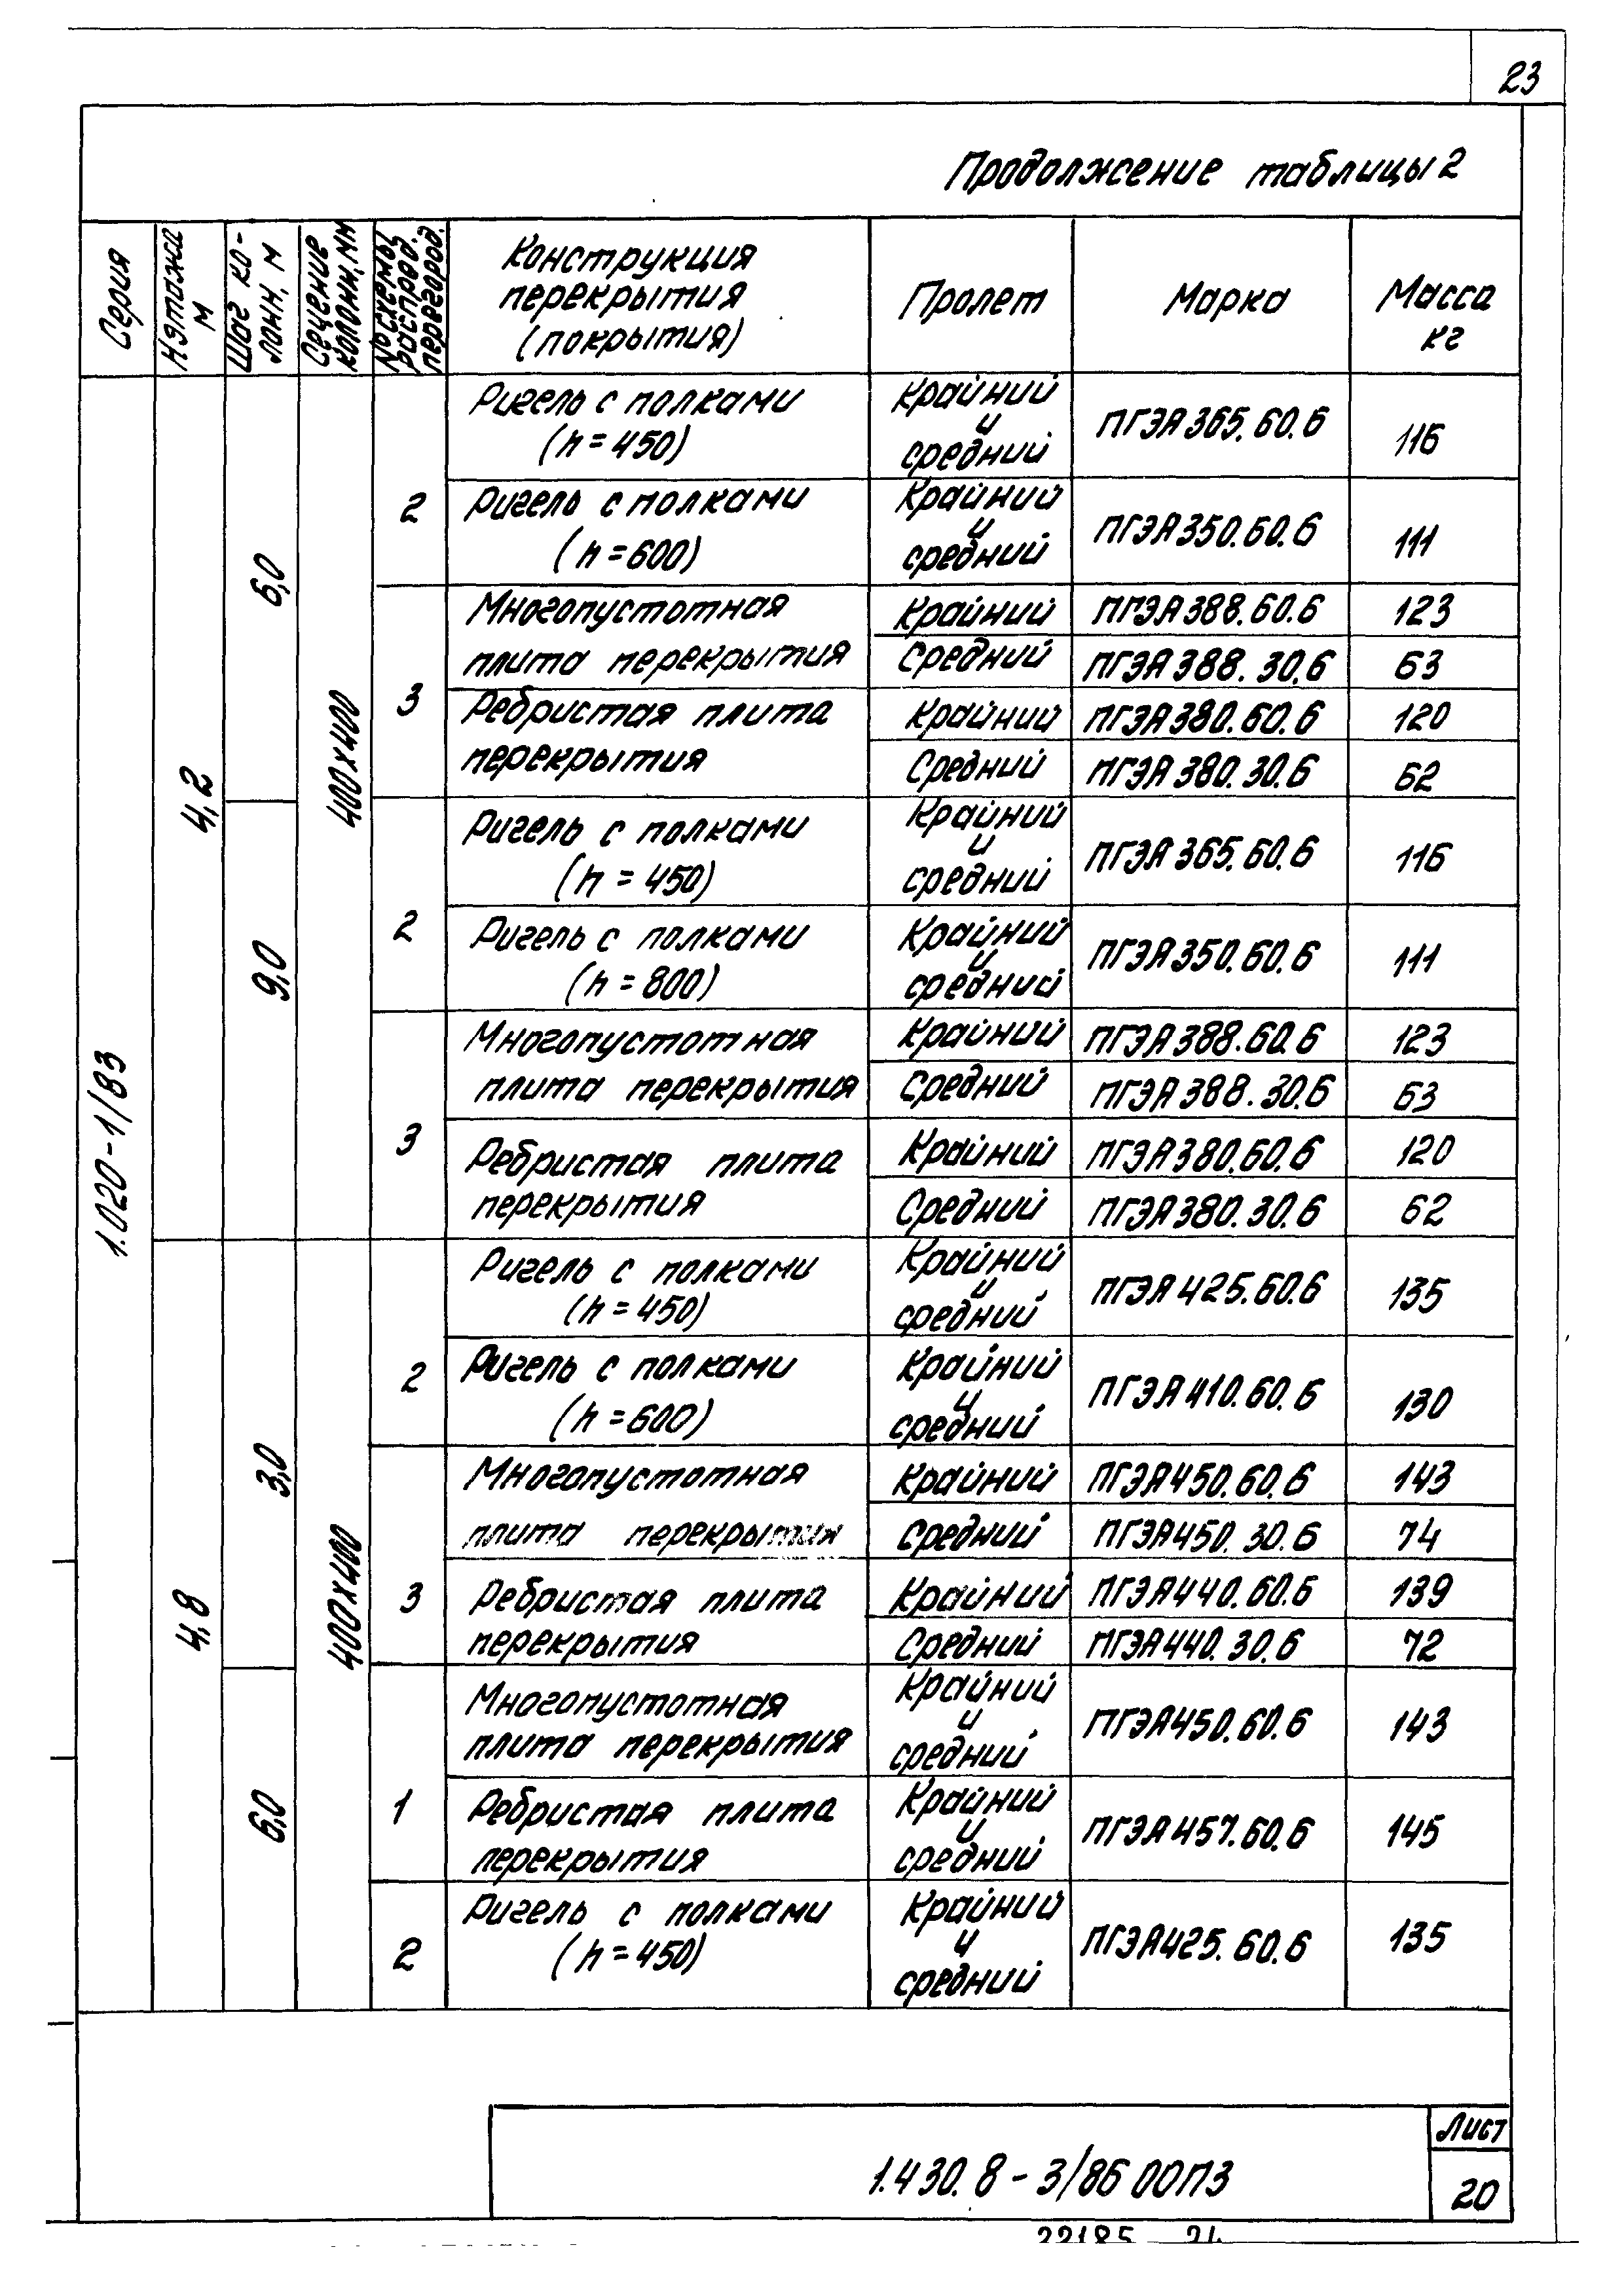 23
Продолжение таблицы 2
Серия
Нэтажа
м
Шаг ко-
лонн, м
Сечение
колонн, мм
№ схемы
распред.
перегород.
Конструкция
перекрытия
(покрытия)
Пролет
Марка
Масса
кг
1.020-1/83
4,2
6,0
400х400
2
Ригель с полками
(h=450)
Крайний
и
средний
ПГЭА365.60.6
116
Ригель с полками
(h=600)
Крайний
и
средний
ПГЭА350.60.6
111
3
Многопустотная
плита перекрытия
Крайний
ПГЭА388.60.6
123
Средний
ПГЭА388.30.6
63
Ребристая плита
перекрытия
Крайний
ПГЭА380.60.6
120
Средний
ПГЭА380.30.6
62
9,0
2
Ригель с полками
(h=450)
Крайний
и
средний
ПГЭА365.60.6
116
Ригель с полками
(h=800)
Крайний
и
средний
ПГЭА350.60.6
111
3
Многопустотная
плита перекрытия
Крайний
ПГЭА388.60.6
123
Средний
ПГЭА388.30.6
63
Ребристая плита
перекрытия
Крайний
ПГЭА380.60.6
120
Средний
ПГЭА380.30.6
62
4,8
3,0
400х400
2
Ригель с полками
(h=450)
Крайний
и
средний
ПГЭА425.60.6
135
Ригель с полками
(h=600)
Крайний
и
средний
ПГЭА410.60.6
130
3
Многопустотная
плита перекрытия
Крайний
ПГЭА450.60.6
143
Средний
ПГЭА450.30.6
74
Ребристая плита
перекрытия
Крайний
ПГЭА440.60.6
139
Средний
ПГЭА440.30.6
72
6,0
1
Многопустотная
плита перекрытия
Крайний
и
средний
ПГЭА450.60.6
143
Ребристая плита
перекрытия
Крайний
и
средний
ПГЭА457.60.6
145
2
Ригель с полками
(h=450)
Крайний
и
средний
ПГЭА425.60.6
135
1.430.8-3/86 00ПЗ
Лист
20
22185 24